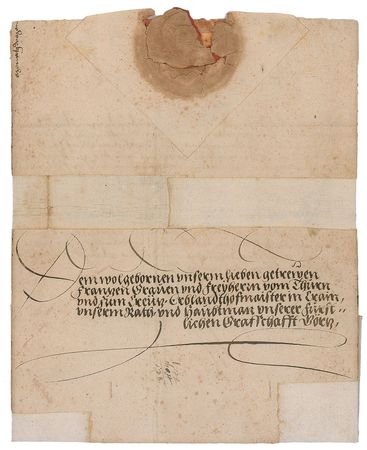 Dem wolgebornen vnserm lieben getrewen
Frantzen Grauen vnd Freyherrn vom Thurn
vnd zum Creutz, Erblandthofmaister in Crain,
vnserm Rath, vnd Haubtman vnserer Fürst=
lichen Grafschafft Görtz,